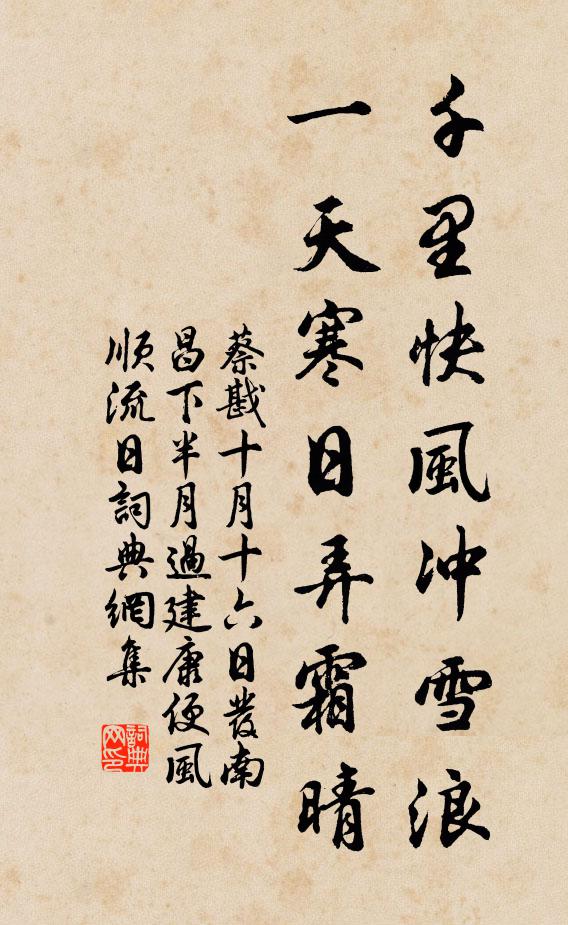 千里快風冲雪浪
一天寒日弄霜晴
蔡戡十月十六日發南
昌下半月過建康便風
順流日詞典網集
詞典网印